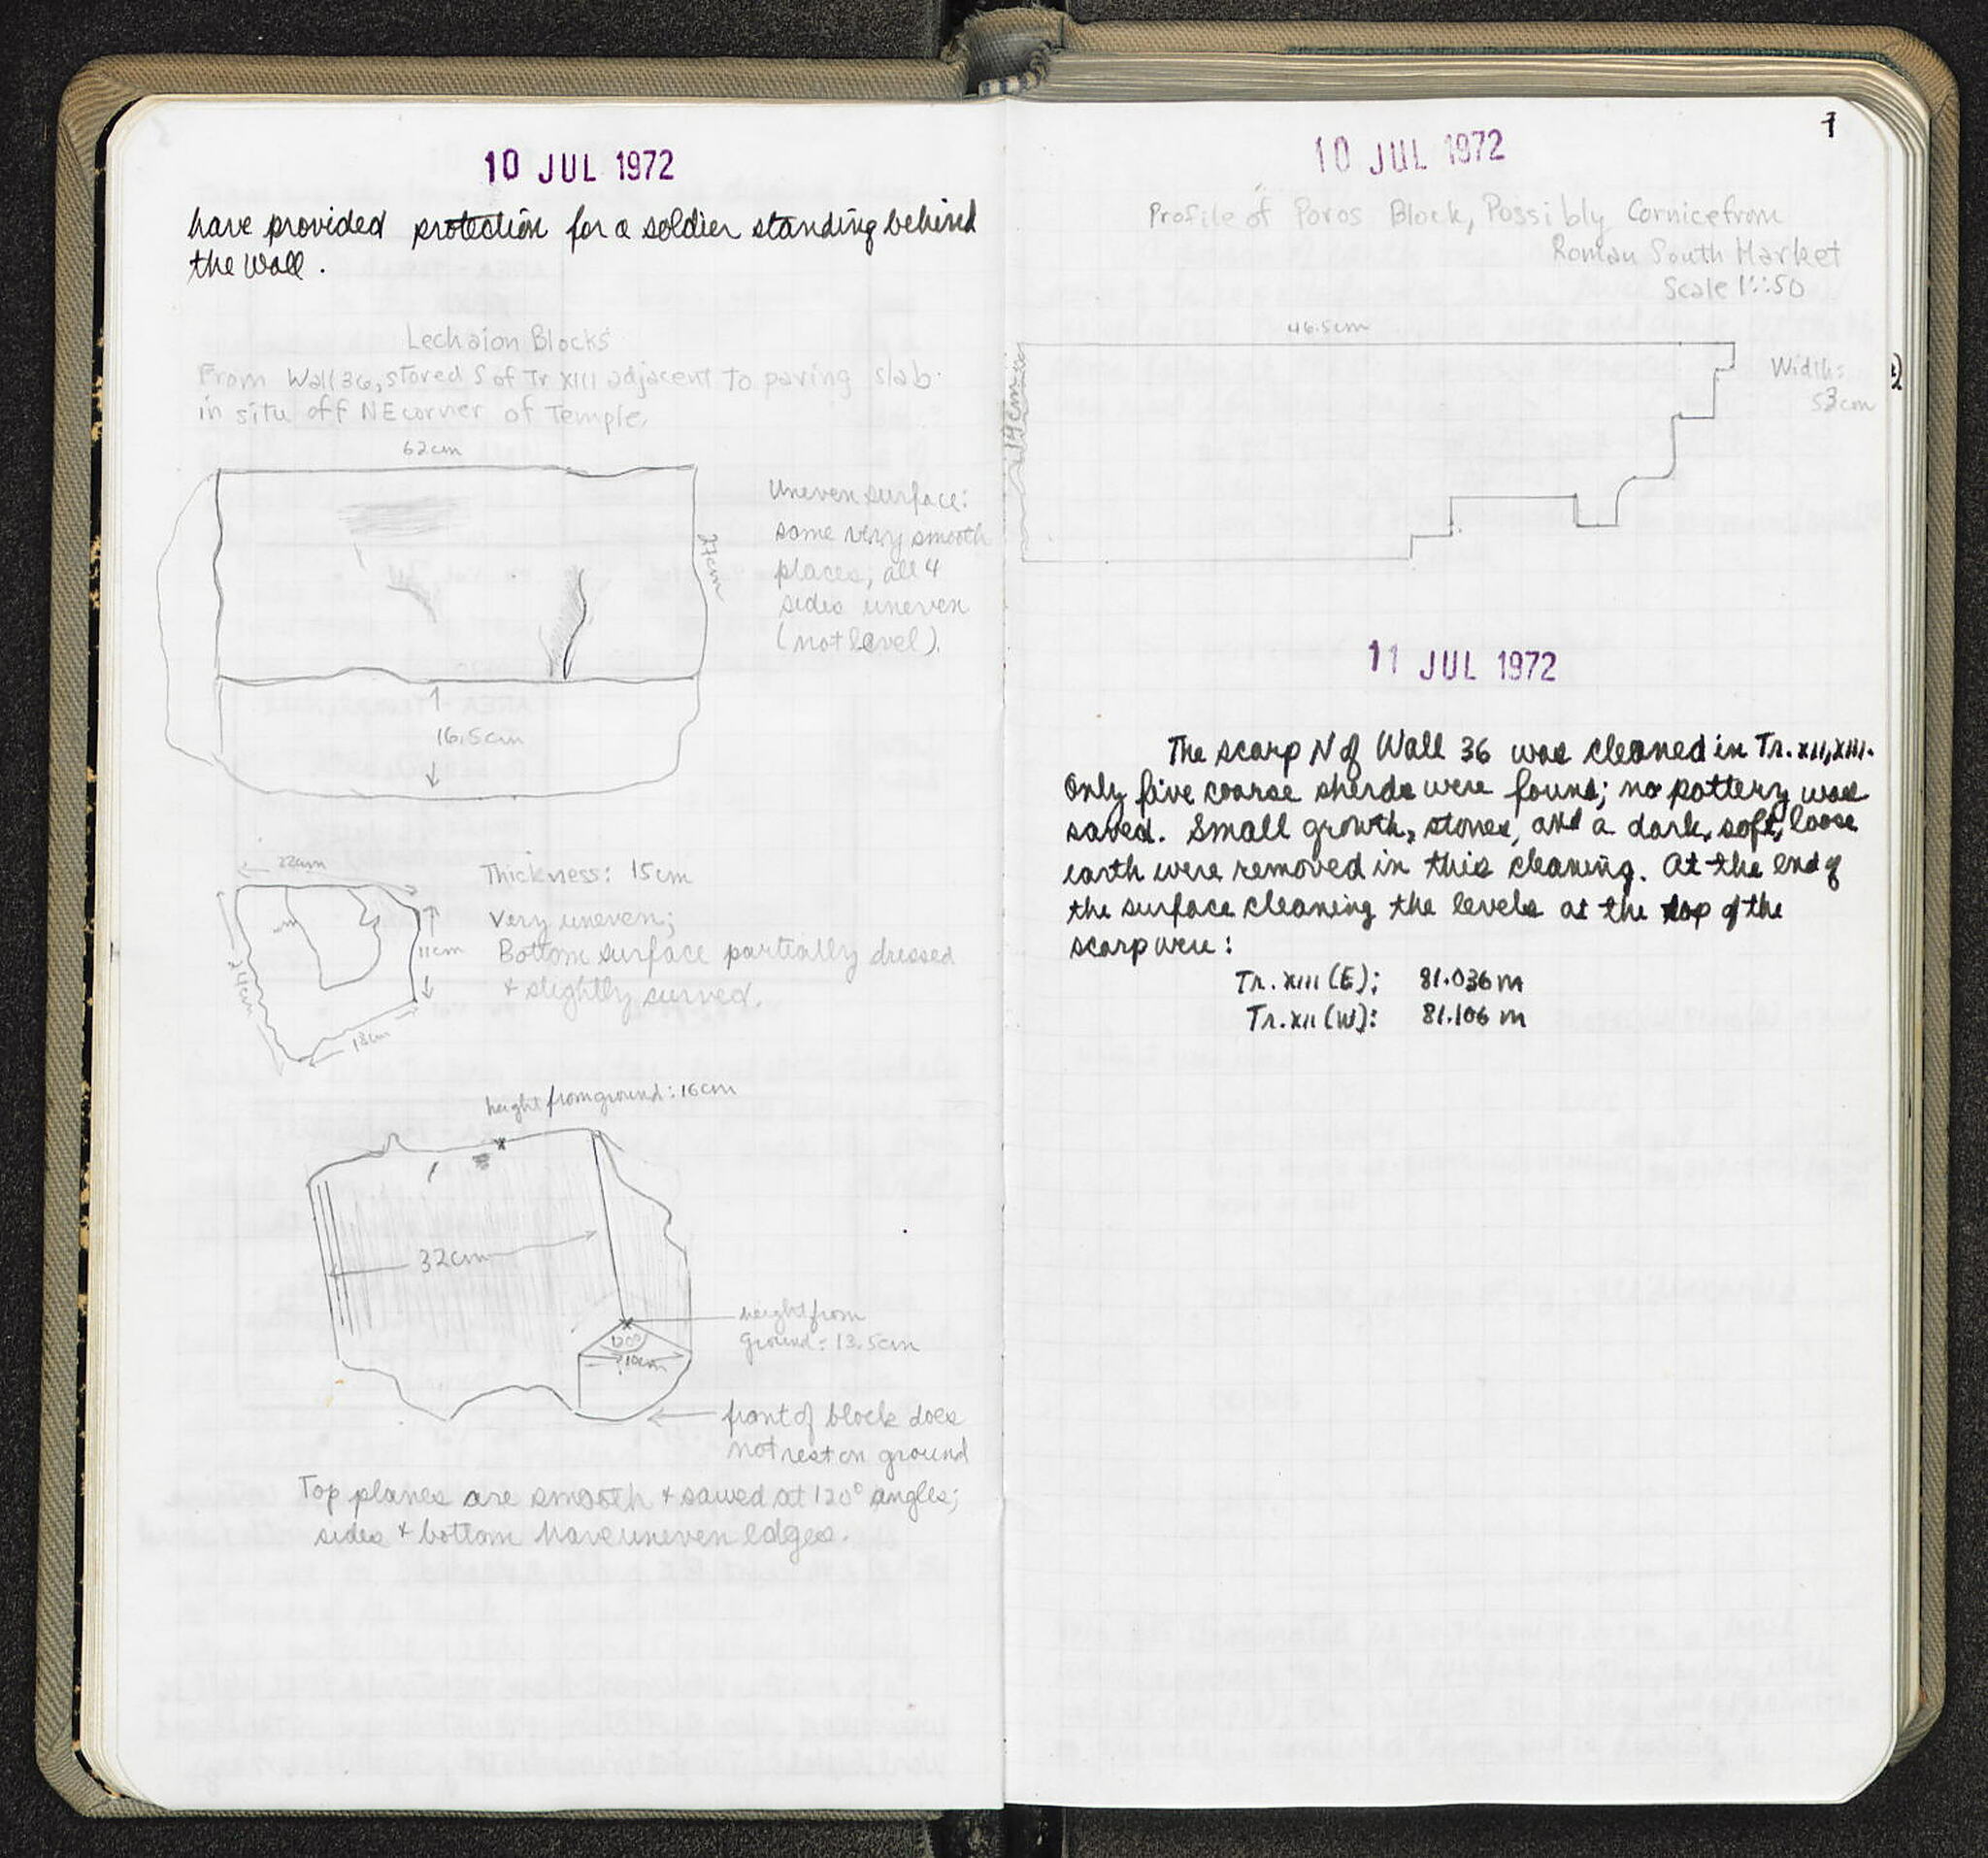 10 JUL 1972
have provided protection for a soldier standing behind
the wall.
Lechaion Blocks
From Wall 36, stored S of Tr XIII adjacent to paving slab
in situ off NE corner of Temple.
62cm
Uneven surface:
some very smooth
places; all 4
sides uneven
(not level).
27cm
16.5cm
22cm
Thickness: 15cm
Very uneven;
11cm
Bottom surface partially dressed
24cm
& slightly curved.
18cm
height from ground: 16cm
32cm
height from
ground: 13.5cm
120°
10cm
front of block does
not rest on ground
Top planes are smooth & sawed at 120° angles;
sides & bottom have uneven edges.
1
10 JUL 1972
Profile of Poros Block, Possibly Cornice from
Roman South Market
Scale 1::50
46.5cm
Width:
53cm
14cm
11 JUL 1972
The scarp N of Wall 36 was cleaned in Tr. XII, XIII.
Only five coarse sherds were found; no pottery was
saved. Small growth, stones, and a dark, soft, loose
earth were removed in this cleaning. At the end of
the surface cleaning the levels at the top of the
scarp were:
Tr. XIII (E): 81.036 m
Tr. XII (W): 81.106 m